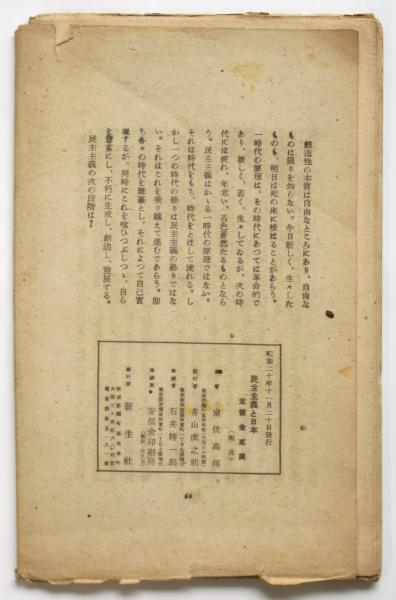 創造性の本質は自由なところにあり、自由な
ものは限りを知らない。今日新しく、生々した
ものも、明日は死の床に横はることがあらう。
一時代の原理は、その時代にあつては革命的で
あり、新しく、若く、生々してゐるが、次の時
代には疲れ、年老い、古色蒼然たるものとなら
う。民主主義はかゝる一時代の原理ではない。
それは時代をもち、時代をとほして流れる。し
かし一つの時代の終りは民主主義の終りではな
い。それはこれを乗り越えて進むであらう。即
ち各々の時代を母臺とし、それによつて自己實
現するが、同時にこれを喰いつぶしつゝ、自ら
を豊富にし、不朽に生成し、創造し、發展する。
民主主義の次の段階は?
昭和二十年十一月二十日發行
民主主義と日本
定價金貳圓
著者 室伏高信
發行者 青山虎之助
印刷者 石井精一郎
印刷所 安信舎印刷所
發行所 新生社
66